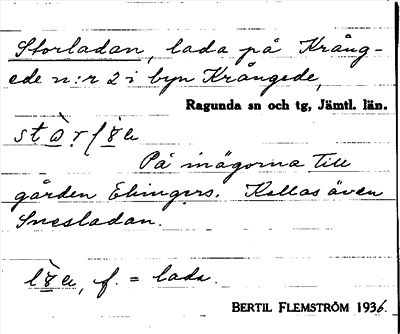 Storladan, lada på Krång-
ede n:r 2 i byn Krångede,
Ragunda sn och tg, Jämtl. län.
På inägorna till
gården Ehingers. Kallas även
Snesladan.
f. = lada.
BERTIL FLEMSTRÖM 1936.